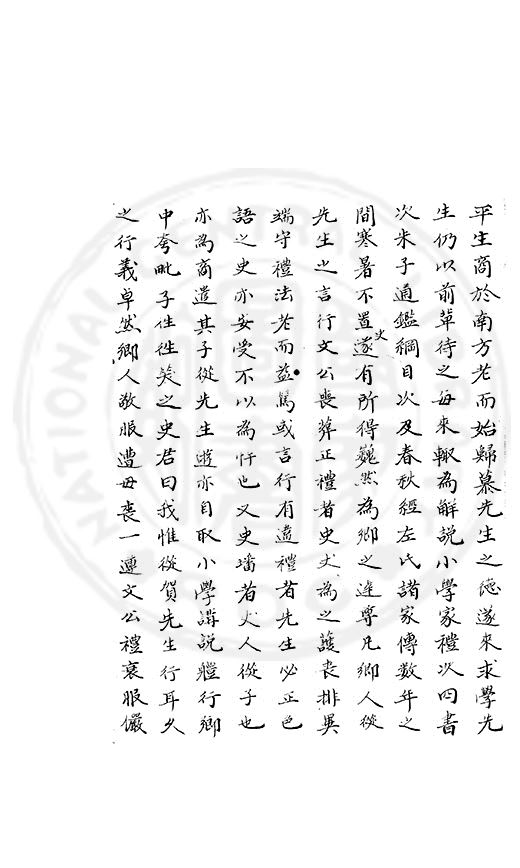 平生商於南方老而始歸慕先生之德遂來求學先
生仍以前輩待之每來輒為解說小學家禮次四書
次朱子通鑑綱目次及春秋經左氏諸家傳數年之
間寒暑不置遂有所得巍然為鄉之達尊凡鄉人從
史
先生之言行文公喪葬正禮者史丈為之護喪排異
端守禮法老而益篤或言行有違禮者先生必正色
語之史亦安受不以為忤也又史璠者丈人從子也
亦為商遣其子從先生遊亦自取小學講說躬行鄉
中夸毗子徃徃笑之史君曰我惟從賀先生行耳久
之行義卓然鄉人敬服遭母喪一遵文公禮衰服儼
NATIONAL CENTRAL